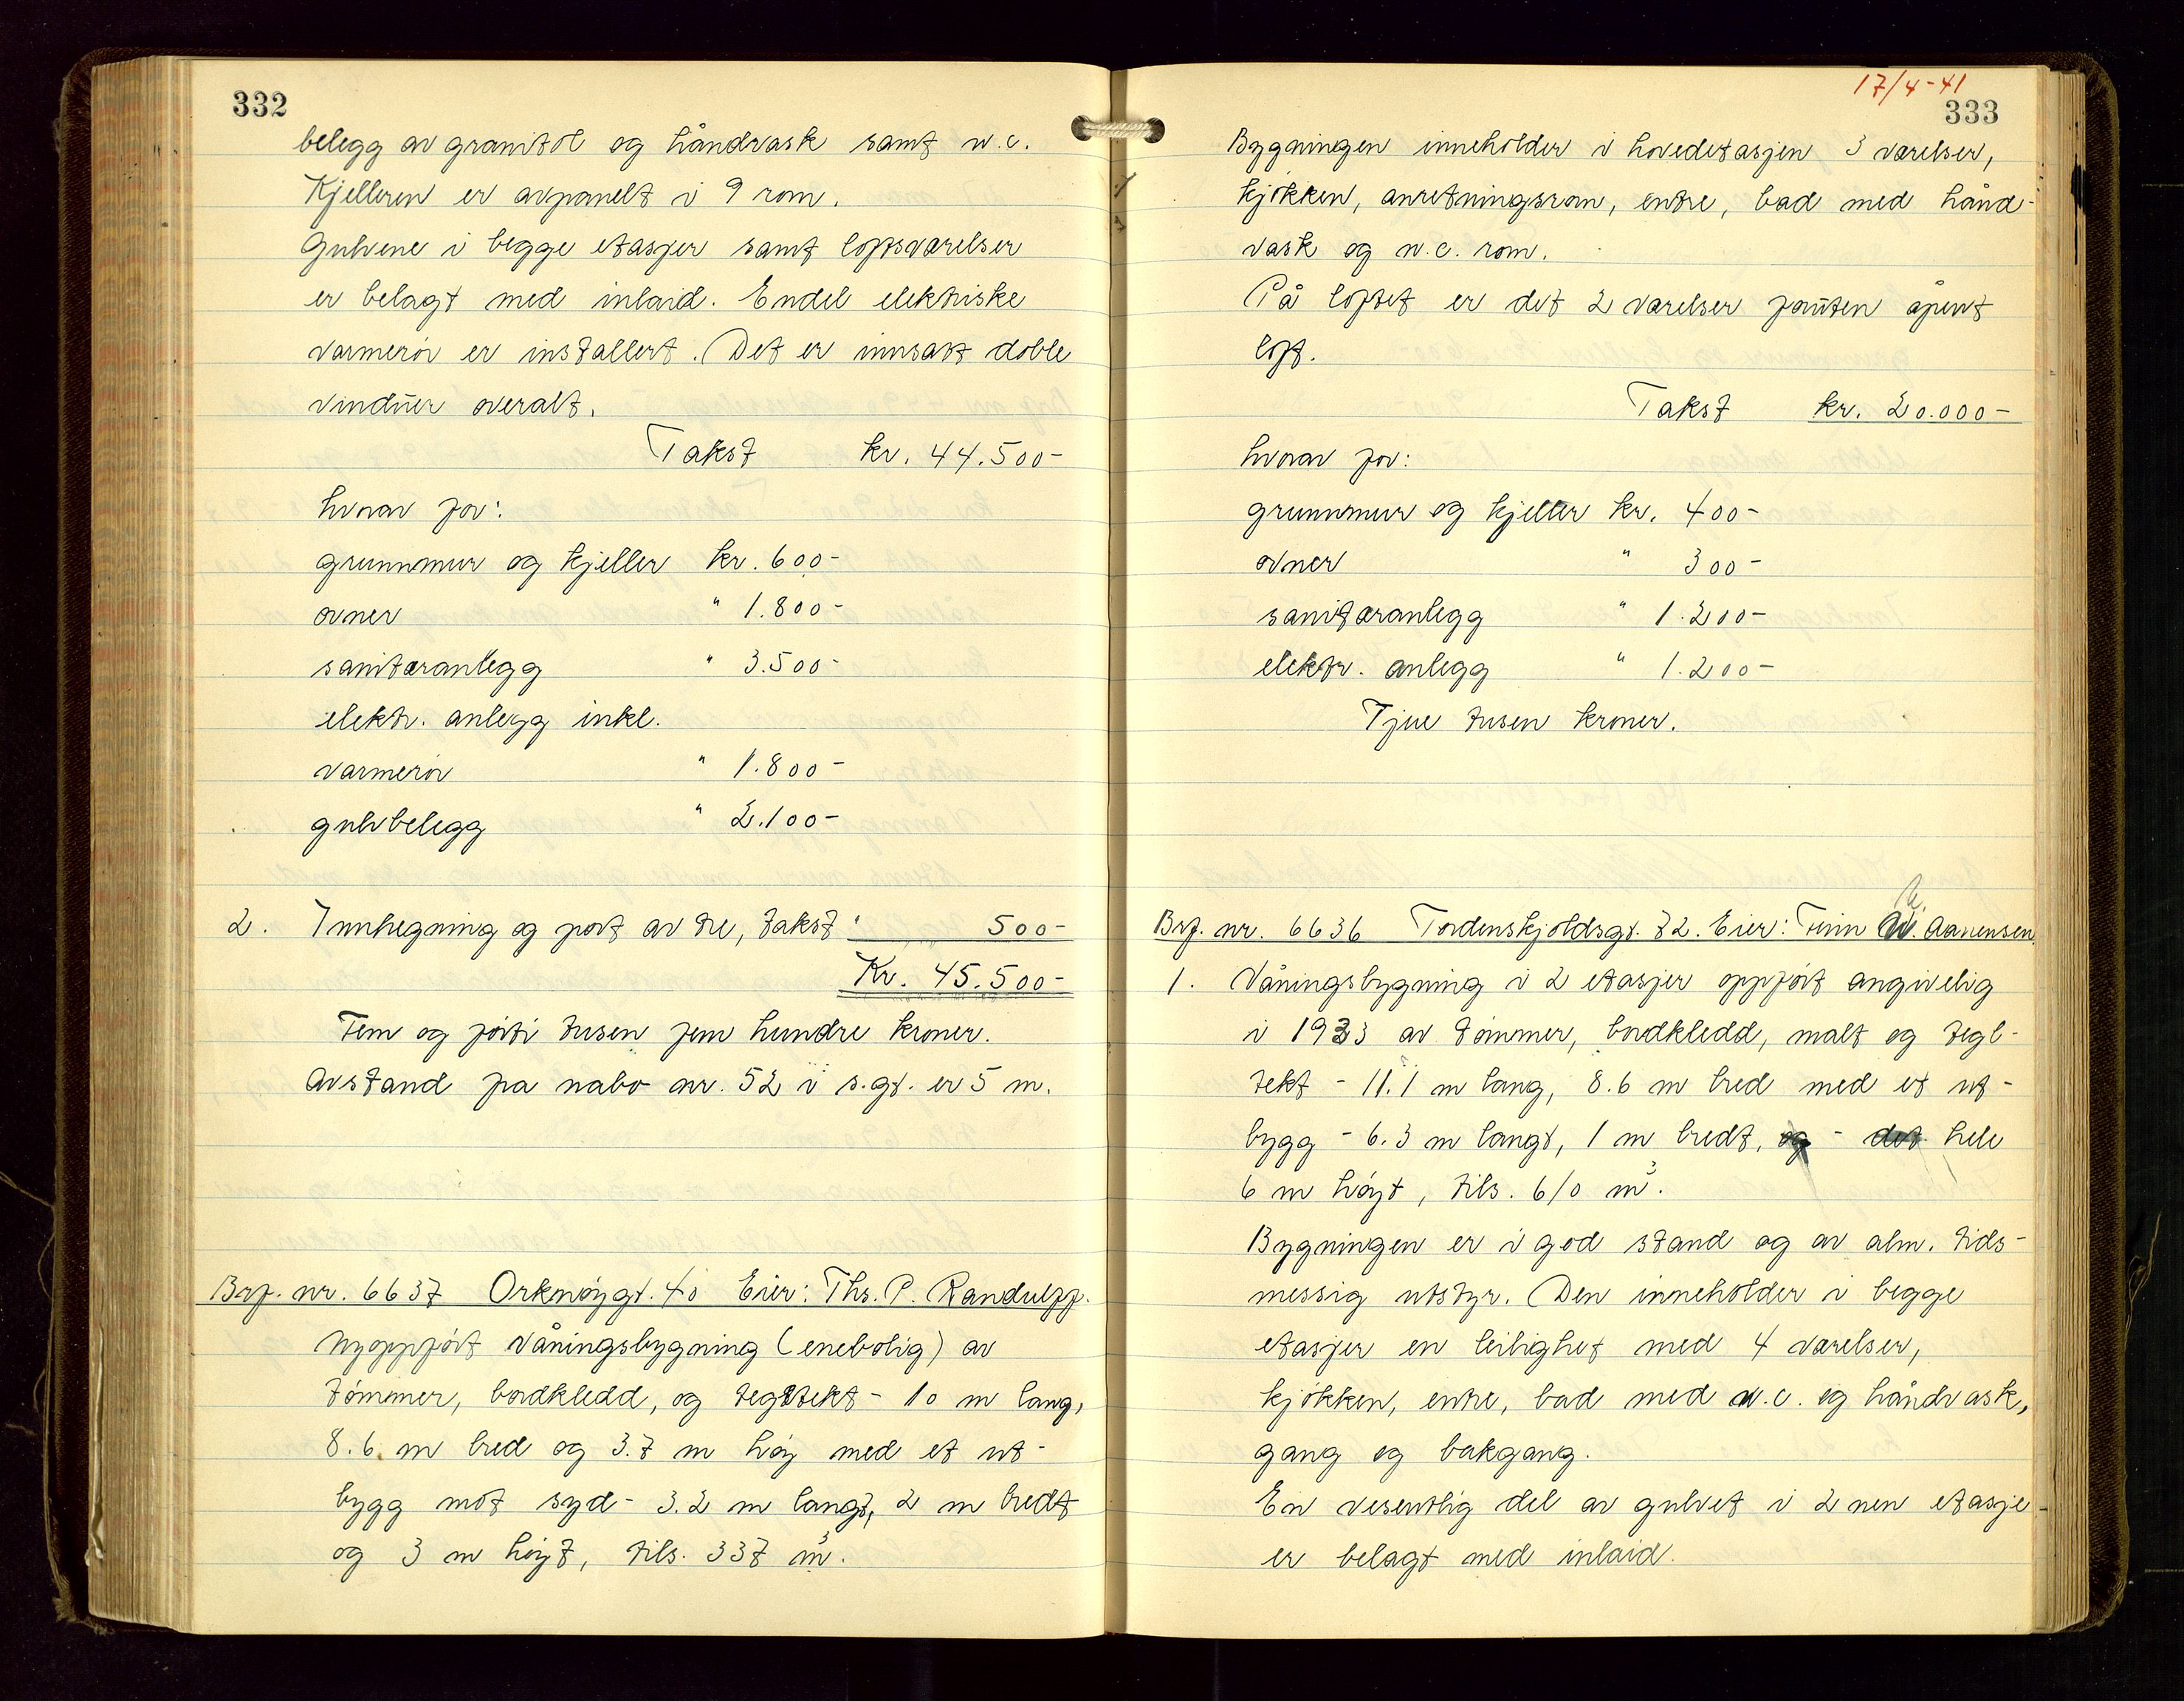 332
belegg av granitol og håndvask samt w.c.
Kjelleren er avpanelt i 9 rom.
Gulvene i begge etasjer samt loftsværelser
er belagt med inlaid. Endel elektriske
varmerör er installert. Det er innsatt doble
vinduer overalt.
Takst kr. 44.500-
hvorav for:
grunnmur og kjeller kr. 600-
ovner " 1.800-
sanitæranlegg " 3.500-
elektr. anlegg inkl.
varmerör " 1.800-
gulvbelegg " 2.100-
2. Innhegning og port av tre, takst " 500-
Kr. 45.500-
Fem og förti tusen fem hundre kroner.
Avstand fra nabo nr. 52 i s.gt. er 5 m.
Brf. nr. 6637 Orknöygt. 40 Eier: Ths. P. Randulff.
Nyoppfört våningsbygning (enebolig) av
tömmer, bordkledd, og tegltekt - 10 m lang,
8.6 m bred og 3.7 m höy med et ut-
bygg mot syd - 3.2 m langt, 2 m bredt
og 3 m höyt, tils. 337 m³.
17/4-41
333
Bygningen inneholder i hovedetasjen 3 værelser,
kjökken, anretningsrom, entre, bad med hånd-
vask og w.c. rom.
På loftet er det 2 værelser foruten åpent
loft.
Takst kr. 20.000-
hvorav for:
grunnmur og kjeller kr. 400-
ovner " 300-
sanitæranlegg " 1.200-
elektr. anlegg " 1.200-
Tjue tusen kroner.
Brf. nr. 6636 Tordenskjoldsgt. 72. Eier: Finn Aanensen.
1. Våningsbygning i 2 etasjer oppfört angivelig
i 1933 av tömmer, bordkledd, malt og tegl-
tekt - 11.1 m lang, 8.6 m bred med et ut-
bygg - 6.3 m langt, 1 m bredt, og - det hele
6 m höyt, tils. 610 m³.
Bygningen er i god stand og av alm. tids-
messig utstyr. Den inneholder i begge
etasjer en leilighet med 4 værelser,
kjökken, entre, bad med w.c. og håndvask,
gang og bakgang.
En vesentlig del av gulvet i 2 nen etasje
er belagt med inlaid.